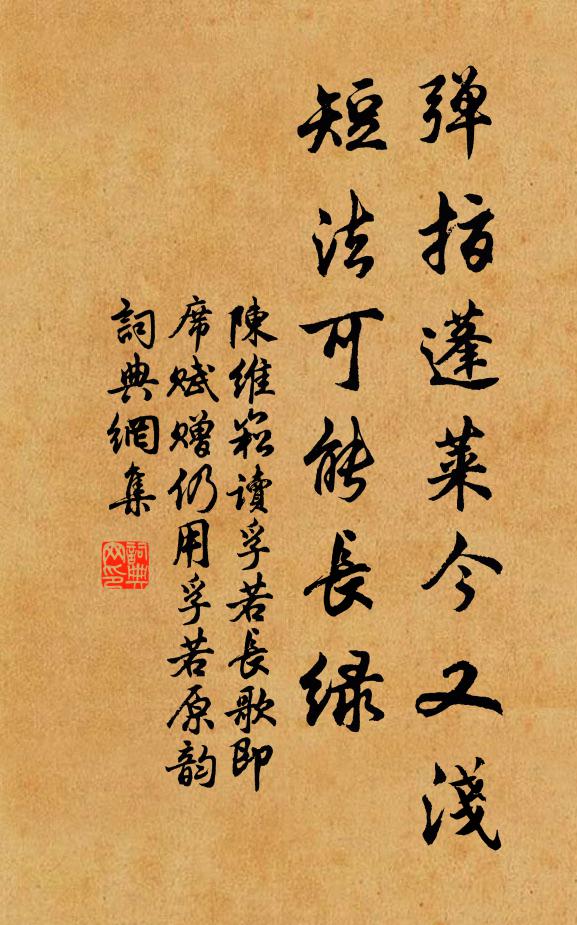 弹指蓬莱今又淺
短法可能長緑
陳維崧讀孚若長歌即
席赋贈仍用孚若原韵
詞典網集
詞典网印